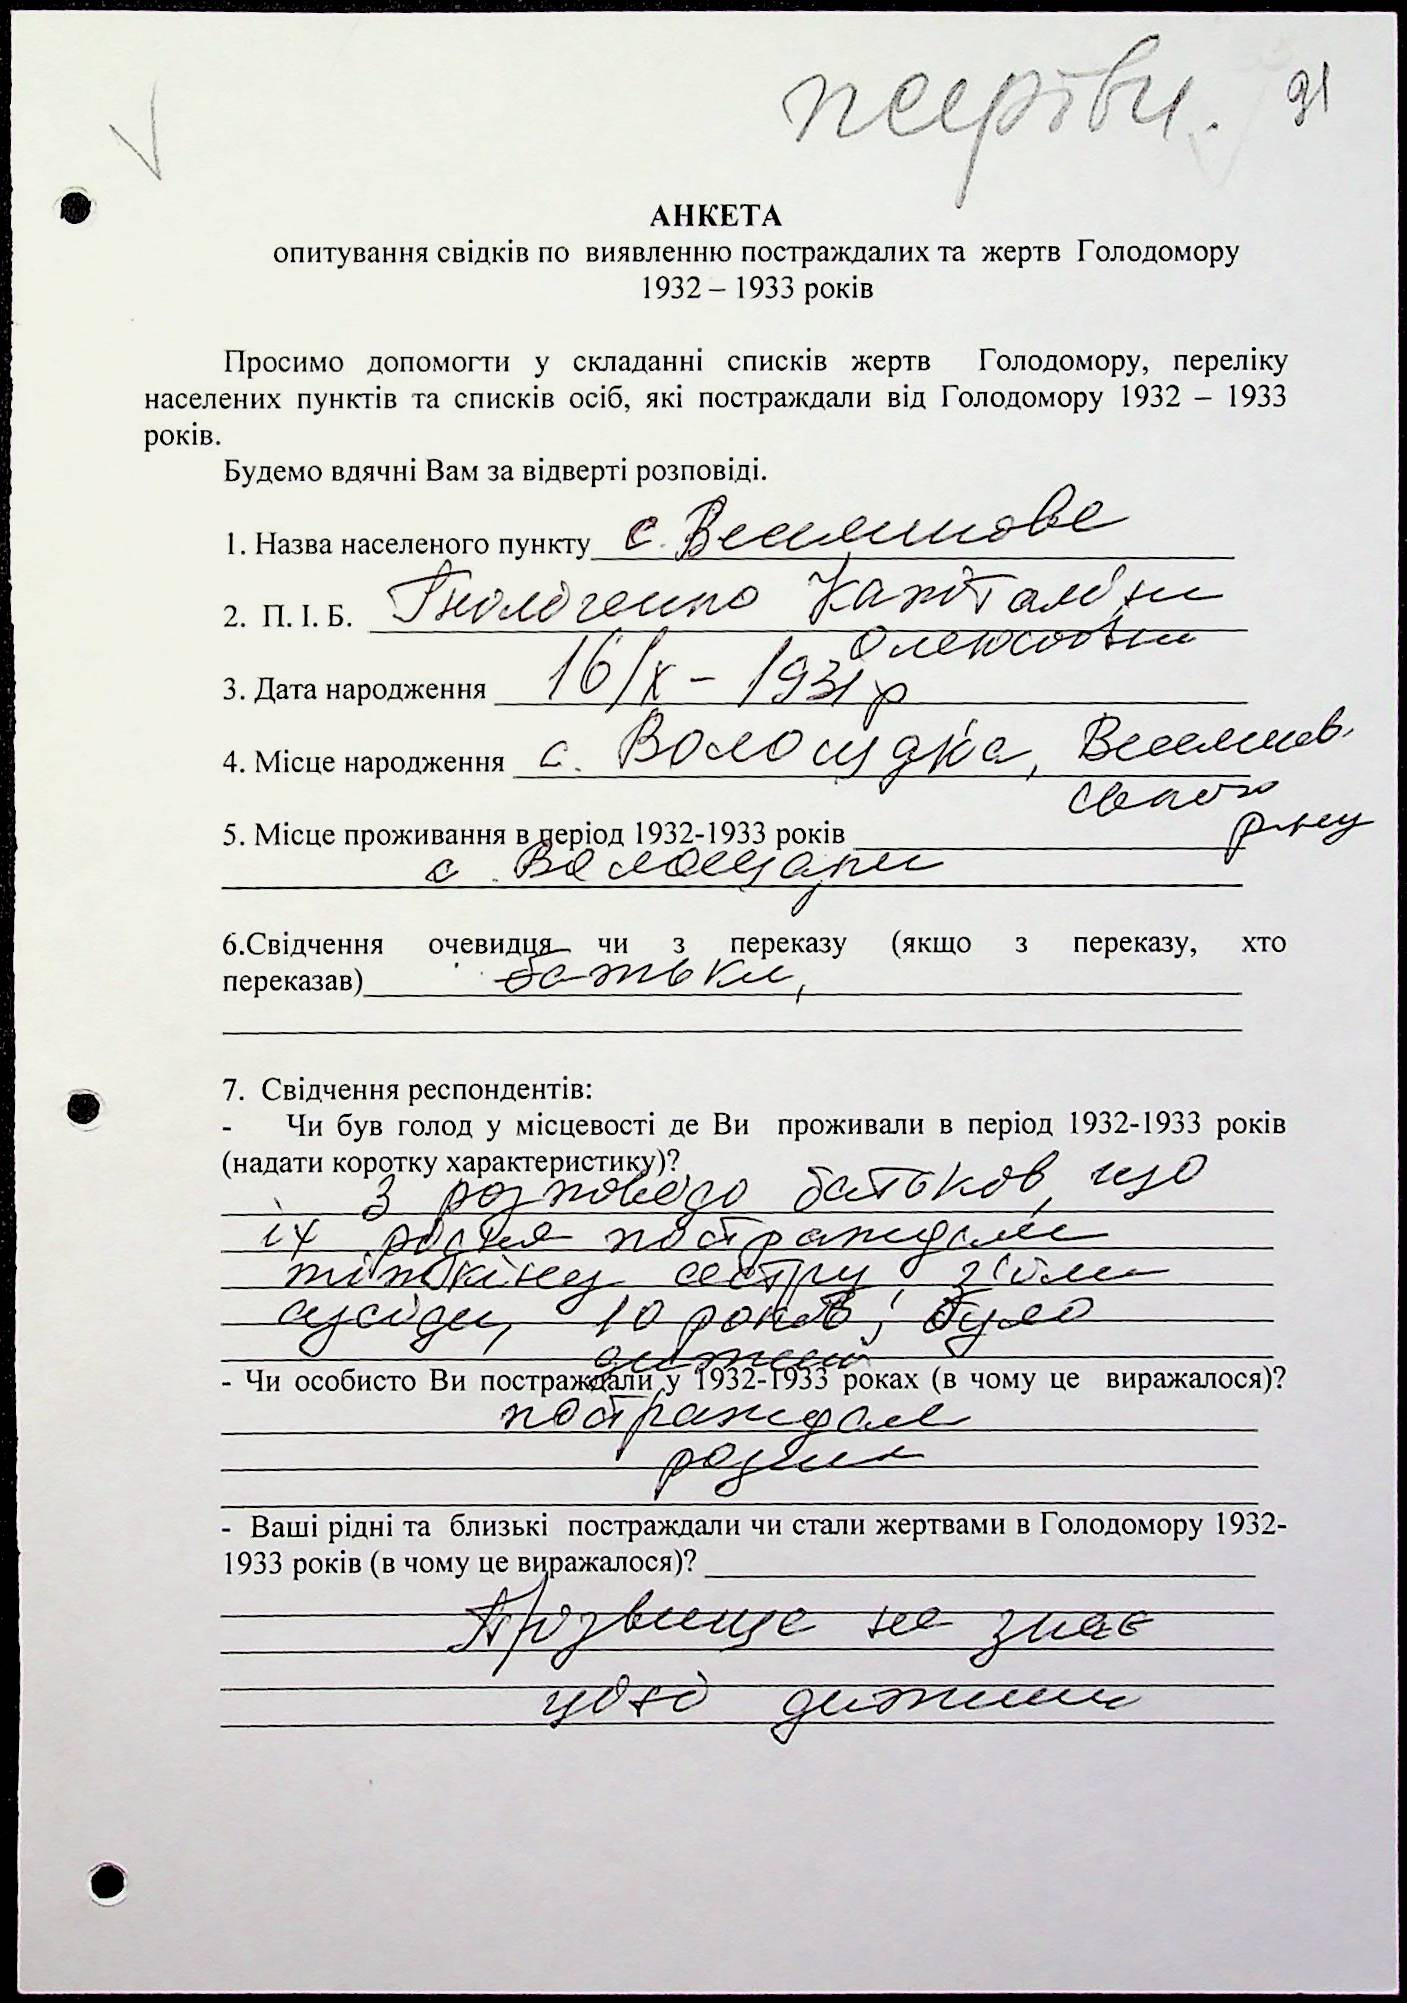 жертви. 91
АНКЕТА
опитування свідків по виявленню постраждалих та жертв Голодомору
1932 – 1933 років
Просимо допомогти у складанні списків жертв Голодомору, переліку
населених пунктів та списків осіб, які постраждали від Голодомору 1932 – 1933
років.
Будемо вдячні Вам за відверті розповіді.
1. Назва населеного пункту с. Веселинове
2. П. І. Б. Капіталіни
Олексіївни
3. Дата народження 16/X – 1931 р
4. Місце народження с. Веселинів
ського
р-ну
5. Місце проживання в період 1932-1933 років
с.
6.Свідчення очевидця чи з переказу (якщо з переказу, хто
переказав) батьки,
7. Свідчення респондентів:
- Чи був голод у місцевості де Ви проживали в період 1932-1933 років
(надати коротку характеристику)?
З розповідю батьків, що
їх рідня постраждали
тіткіну сестру з'їли
сусіди, 10 років, було
дитині
- Чи особисто Ви постраждали у 1932-1933 роках (в чому це виражалося)?
постраждали
родина
- Ваші рідні та близькі постраждали чи стали жертвами в Голодомору 1932-
1933 років (в чому це виражалося)?
Прізвище не знає
цієї дитини